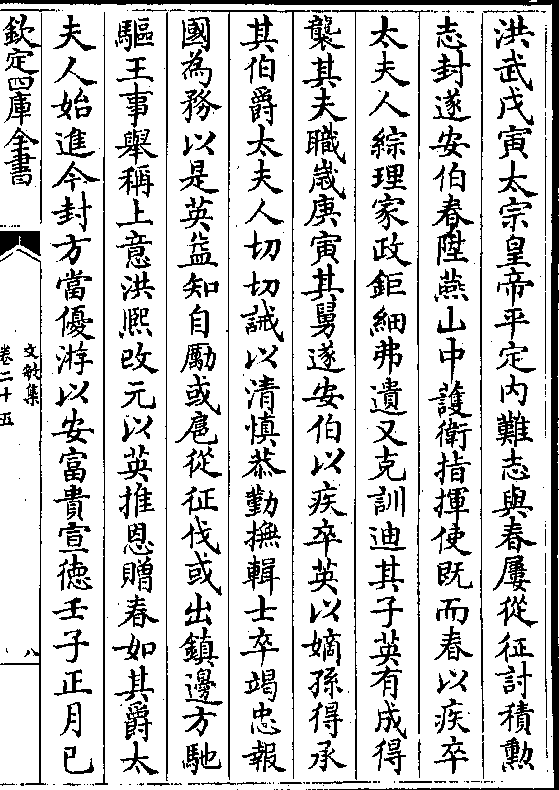 洪武戊寅太宗皇帝平定内難志與春屢從征討積勲
志封遂安伯春陞燕山中護衛指揮使既而春以疾卒
太夫人綜理家政鉅細弗遺又克訓迪其子英有成得
襲其夫職歲庚寅其舅遂安伯以疾卒英以嫡孫得承
其伯爵太夫人切切誡以清慎恭勤撫輯士卒竭忠報
國為務以是英益知自勵或扈從征伐或出鎮邊方馳
驅王事舉稱上意洪熈改元以英推恩贈春如其爵太
夫人始進今封方當優游以安富貴宣徳壬子正月已
欽定四庫全書
文敏集
卷二十五
八